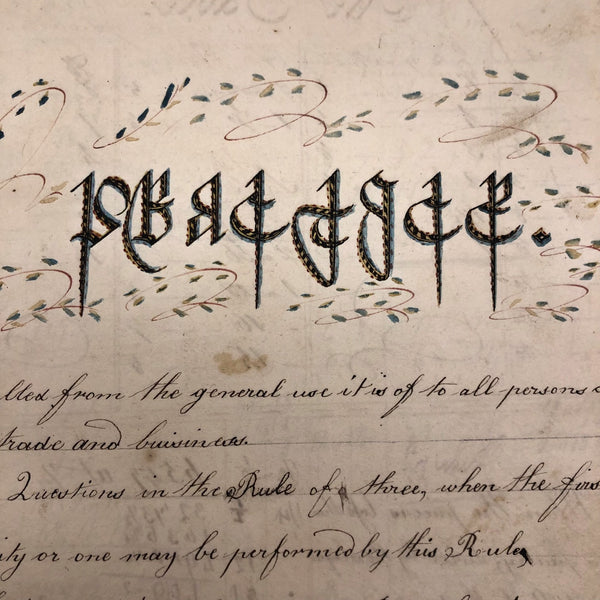 PRACTICE.
lled from the general use it is of to all persons
trade and buisiness.
Questions in the Rule of three, when the firs
ity or one may be performed by this Rule,